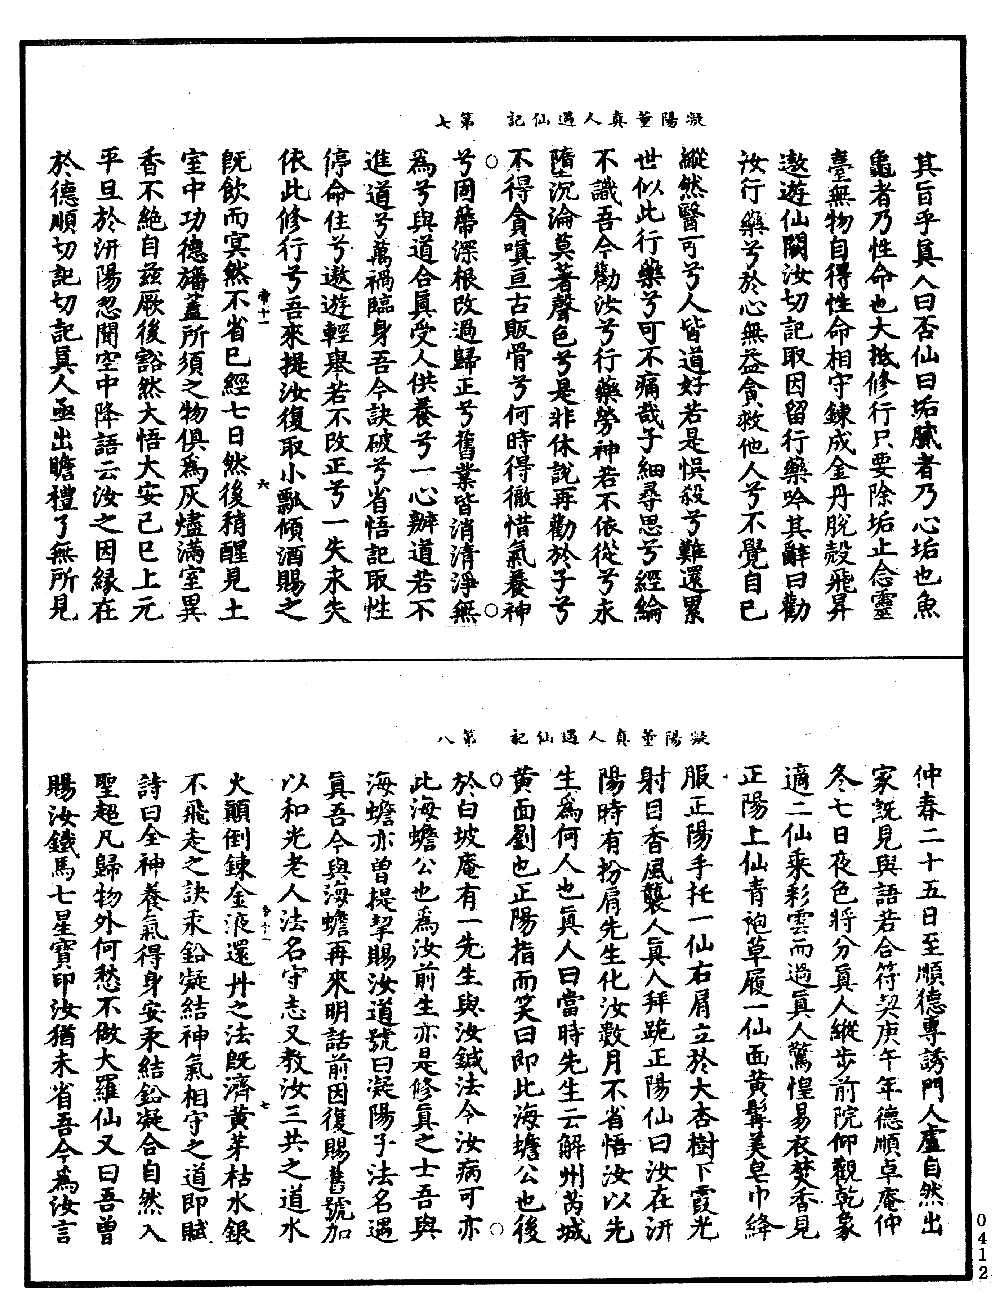 凝陽董真人遇仙記　第七
其旨乎真人曰否仙曰垢膩者乃心垢也魚
龜者乃性命也大抵修行只要除垢止念靈
臺無物自得性命相守鍊成金丹脫殼飛昇
遨遊仙闕汝切記取因留行藥吟其辭曰勸
汝行藥兮於心無益貪救他人兮不覺自己
縱然醫可兮人皆道好若是悞殺兮難還累
世似此行藥兮可不痛哉子細尋思兮經綸
不識吾今勸汝兮行藥勞神若不依從兮永
墮沉淪莫著聲色兮是非休說再勸於子兮
不得貪嗔亘古販骨兮何時得徹惜氣養神
兮固蔕深根改過歸正兮舊業皆消清淨無
為兮與道合真受人供養兮一心辦道若不
進道兮萬禍臨身吾今訣破兮省悟記取性
停命住兮遨遊輕舉若不改正兮一失永失
依此修行兮吾來提汝復取小瓢傾酒賜之
既飲而寘然不省已經七日然後稍醒見土
室中功德旛蓋所須之物俱為灰燼滿室異
香不絕自茲厥後豁然大悟大安己巳上元
平旦於汧陽忽聞空中降語云汝之因緣在
於德順切記切記真人亟出瞻禮了無所見
帝十一
六
凝陽董真人遇仙記　第八
仲春二十五日至順德專誘門人盧自然出
家既見與語若合符契庚午年德順卓庵仲
冬七日夜色將分真人縱步前院仰觀乾象
適二仙乘彩雲而過真人驚惶易衣焚香見
正陽上仙青袍草履一仙面黃髯美皂巾絳
服正陽手托一仙右肩立於大杏樹下霞光
射目香風襲人真人拜跪正陽仙曰汝在汧
陽時有扮肩先生化汝數月不省悟汝以先
生為何人也真人曰當時先生云解州芮城
黃面劉也正陽指而笑曰即此海蟾公也後
於白坡庵有一先生與汝鍼法今汝病可亦
此海蟾公也為汝前生亦是修真之士吾與
海蟾亦曾提挈賜汝道號曰凝陽子法名遇
真吾今與海蟾再來明話前因復賜舊號加
以和光老人法名守志又教汝三共之道水
火顛倒鍊金液還丹之法既濟黃芽枯水銀
不飛走之訣汞鉛凝結神氣相守之道即賦
詩曰全神養氣得身安汞結鉛凝合自然入
聖超凡歸物外何愁不做大羅仙又曰吾曾
賜汝鐵馬七星寶印汝猶未省吾今為汝言
帝十一
七
0412